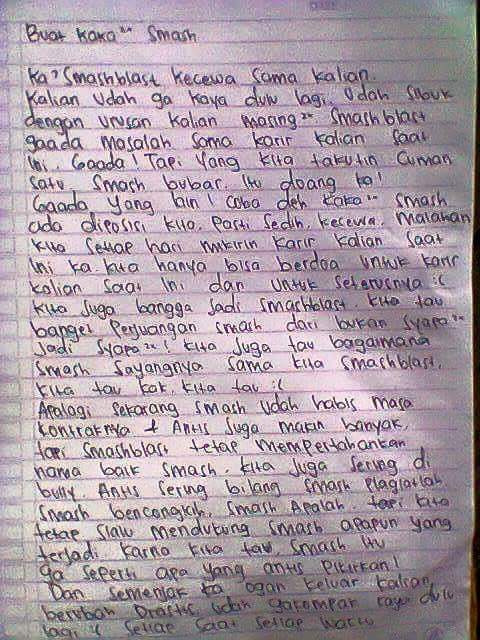 Buat kaka²" Smash
ka² Smashblast kecewa sama kalian.
kalian udah ga kaya dulu lagi. Udah sibuk
dengan urusan kalian masing²" Smashblast
gaada masalah sama karir kalian saat
ini. Gaada! Tapi yang kita takutin Cuman
satu. Smash bubar. Itu doang ka!
Gaada yang lain! Coba deh kaka²" Smash
ada diposisi kita. Pasti sedih, kecewa. Malahan
kita setiap hari mikirin karir kalian saat
ini ka. kita hanya bisa berdoa untuk karir
kalian saat ini dan untuk seterusnya :(
kita juga bangga jadi smashblast. kita tau
banget Perjuangan smash dari bukan Syapa²"
jadi Syapa²"! kita juga tau bagaimana
smash Sayangnya sama kita smashblast.
kita tau kak. kita tau :(
Apalagi sekarang smash udah habis masa
kontraknya + Antis juga makin banyak.
tapi smashblast tetap mempertahankan
nama baik smash. kita juga sering di
bully. Antis sering bilang smash plagiatlah
smash bencongklh. smash Apalah. tapi kita
tetap slalu mendukung smash apapun yang
terjadi. karna kita tau smash itu
ga seperti apa yang antis pikirkan!
Dan semenjak ka ogan keluar kalian
berubah Drastis. udah gakompak kaya dulu
lagi :( setiap saat setiap waktu